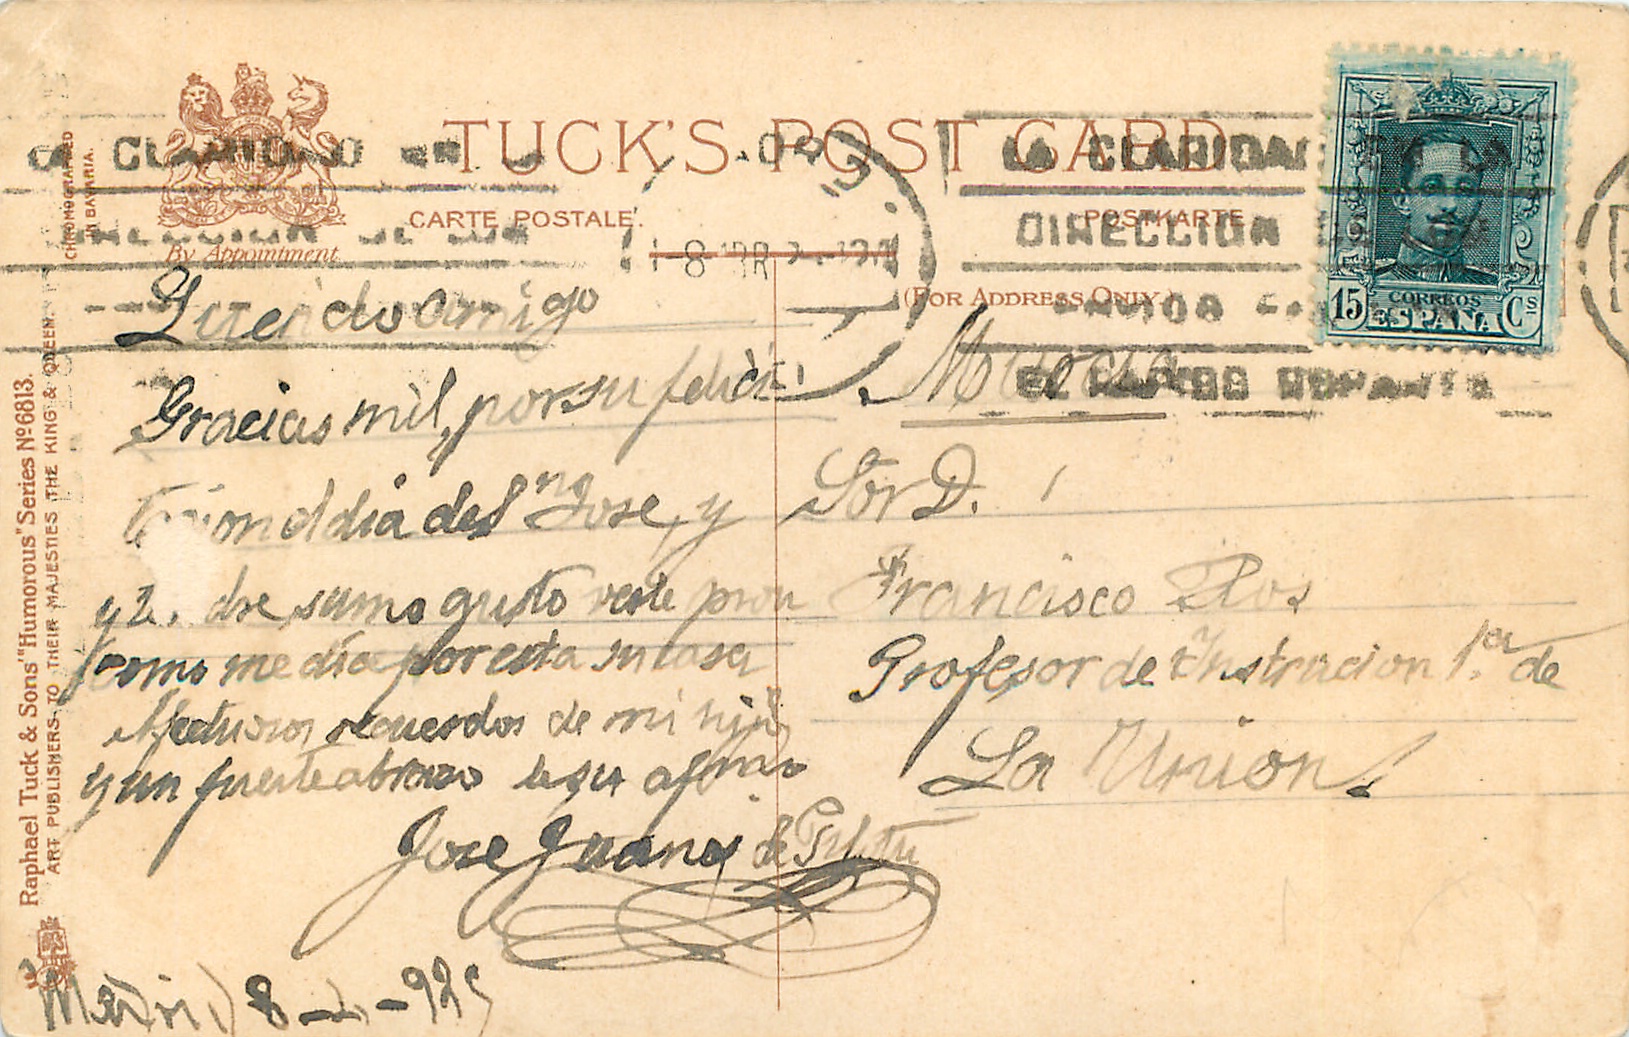 TUCK'S POST CARD
CARTE POSTALE.
POSTKARTE
By Appointment
(FOR ADDRESS ONLY.)
CHROMOGRAPHED
IN BAVARIA.
Raphael Tuck & Sons' "Humorous" Series Nº 6813.
ART PUBLISHERS TO THEIR MAJESTIES THE KING & QUEEN.
LA CLARIDAD EN LA
DIRECCION DE LOS
CORREOS
ESPAÑA
15 Cs
Querido amigo
Gracias mil, por su felici
el dia del Sn Jose, y
sumo gusto verle
como me dia por esta su casa
Afectuosos recuerdos de mi hijo
y un fuerte abrazo de su afmo
Jose Juana de
Madrid 8-4-925
Murcia
Sor D.
Francisco Ros
Profesor de Instrucion 1.er de
La Union.